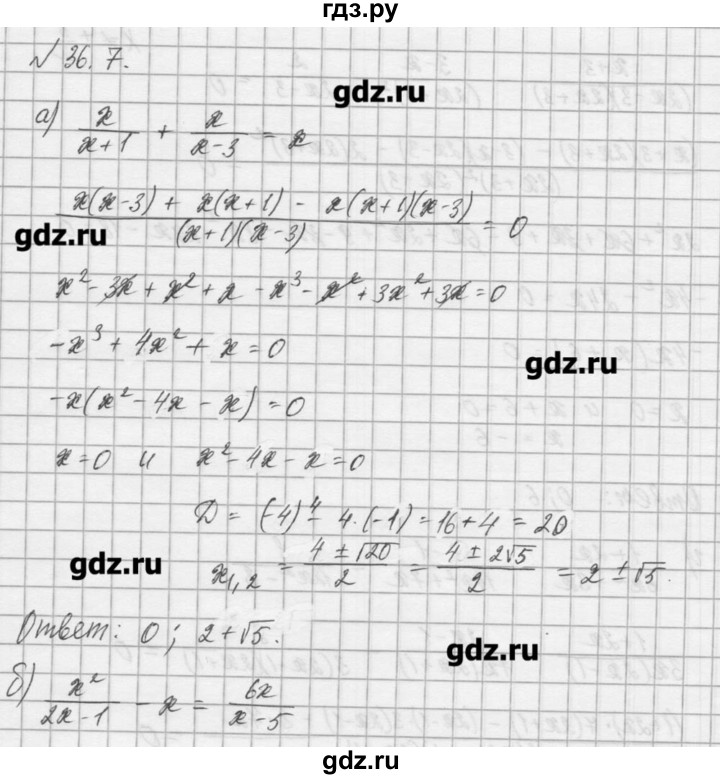 гдз.ру
№ 36.7.
gdz.ru
а) x/(x+1) + x/(x-3) = x
(x(x-3) + x(x+1) - x(x+1)(x-3))/((x+1)(x-3)) = 0
gdz.ru
x² - 3x + x² + x - x³ - x² + 3x² + 3x = 0
-x³ + 4x² + x = 0
gdz.ru
-x(x² - 4x - x) = 0
x = 0 и x² - 4x - x = 0
D = (-4)⁴ - 4·(-1) = 16 + 4 = 20
gdz.ru
x₁,₂ = (4 ± √20)/2 = (4 ± 2√5)/2 = 2 ± √5.
Ответ: 0; 2 + √5.
gdz.ru
б) x²/(2x-1) - x = 6x/(x-5)
gdz.ru